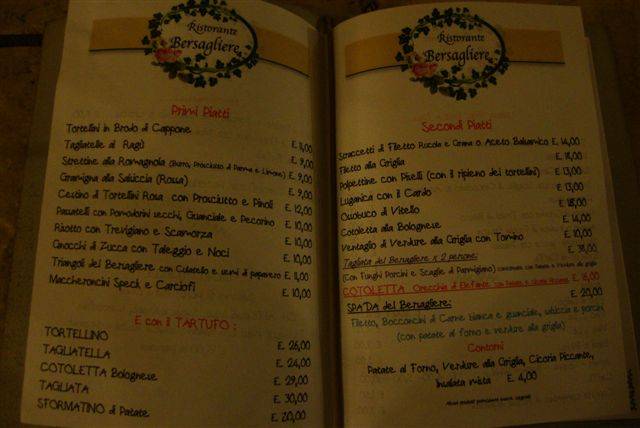 Ristorante
Bersagliere
Primi Piatti
Tortellini in Brodo di Cappone £ 11,00
Tagliatelle al Ragù £ 9,00
Strettine alla Romagnola (Burro, Prosciutto di Parma e Limone) £ 9,00
Gramigna alla Salsiccia (Rossa) £ 9,00
Cestino di Tortellini Rosa con Prosciutto e Pinoli £ 12,00
Passatelli con Pomodorini secchi, Guanciale e Pecorino £ 10,00
Risotto con Trevigiano e Scamorza £ 10,00
Gnocchi di Zucca con Taleggio e Noci £ 10,00
Triangoli del Bersagliere con Culatello e semi di papavero £ 11,00
Maccheroncini Speck e Carciofi £ 10,00
E con il TARTUFO :
TORTELLINO £ 26,00
TAGLIATELLA £ 24,00
COTOLETTA Bolognese £ 29,00
TAGLIATA £ 30,00
SFORMATINO di Patate £ 20,00
Ristorante
Bersagliere
Secondi Piatti
Straccetti di Filetto Rucola e Grana o Aceto Balsamico £ 14,00
Filetto alla Griglia £ 18,00
Polpettine con Piselli (con il ripieno dei tortellini) £ 13,00
Luganica con il Cardo £ 13,00
Ossobuco di Vitello £ 18,00
Cotoletta alla Bolognese £ 14,00
Ventaglio di Verdure alla Griglia con Tomino £ 10,00
Tagliata del Bersagliere x 2 persone: £ 38,00
(con Funghi Porcini e Scaglie di Parmigiano)
COTOLETTA Orecchia di Elefante £ 18,00
SPADA del Bersagliere: £ 20,00
Filetto, Bocconcini di Carne bianca e guanciale, salsiccia e porcini
(con patate al forno e verdure alla griglia)
Contorni
Patate al Forno, Verdure alla Griglia, Cicoria Piccante,
Insalata mista £ 4,00